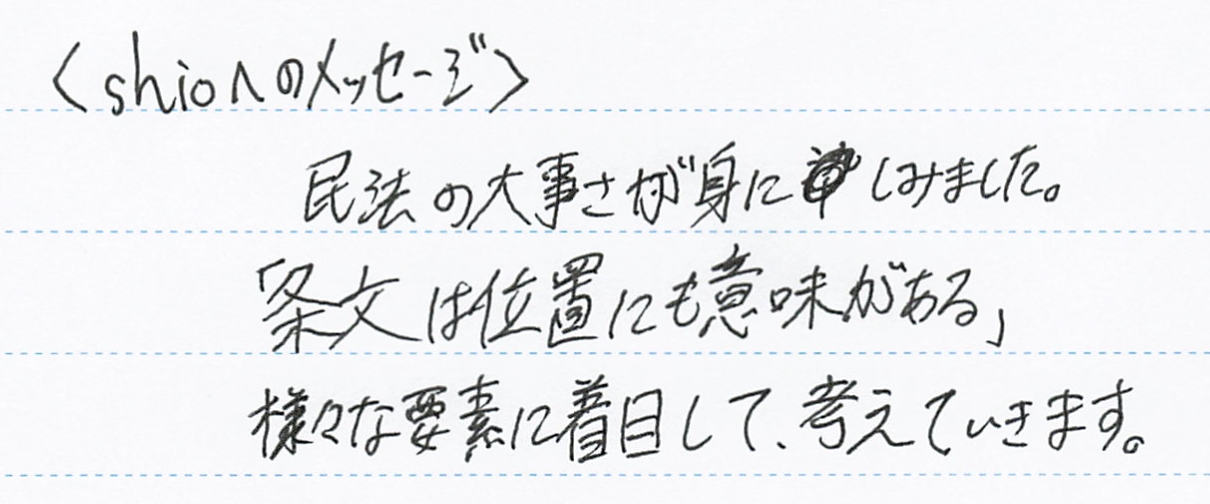 〈shioへのメッセージ〉
民法の大事さが身にしみました。
「条文は位置にも意味がある」
様々な要素に着目して、考えていきます。